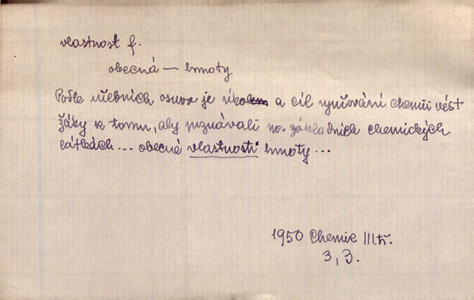 vlastnost f.
obecná — hmoty
Podle učebních osnov je úkolem a cíl vyučování chemii vést
žáky k tomu, aby poznávali na základních chemických
látkách... obecné vlastnosti hmoty...
1950 Chemie III.tř.
3, 3.